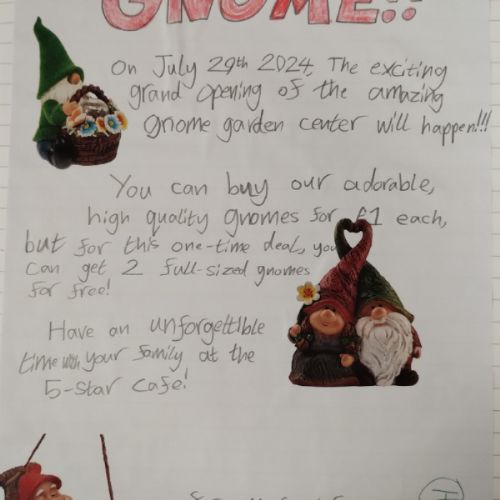 GNOME!!
On July 29th 2024, The exciting
grand opening of the amazing
gnome garden center will happen!!!
You can buy our adorable,
high quality gnomes for £1 each,
but for this one-time deal, you
can get 2 full-sized gnomes
for free!
Have an unforgettible
time with your family at the
5-star cafe!